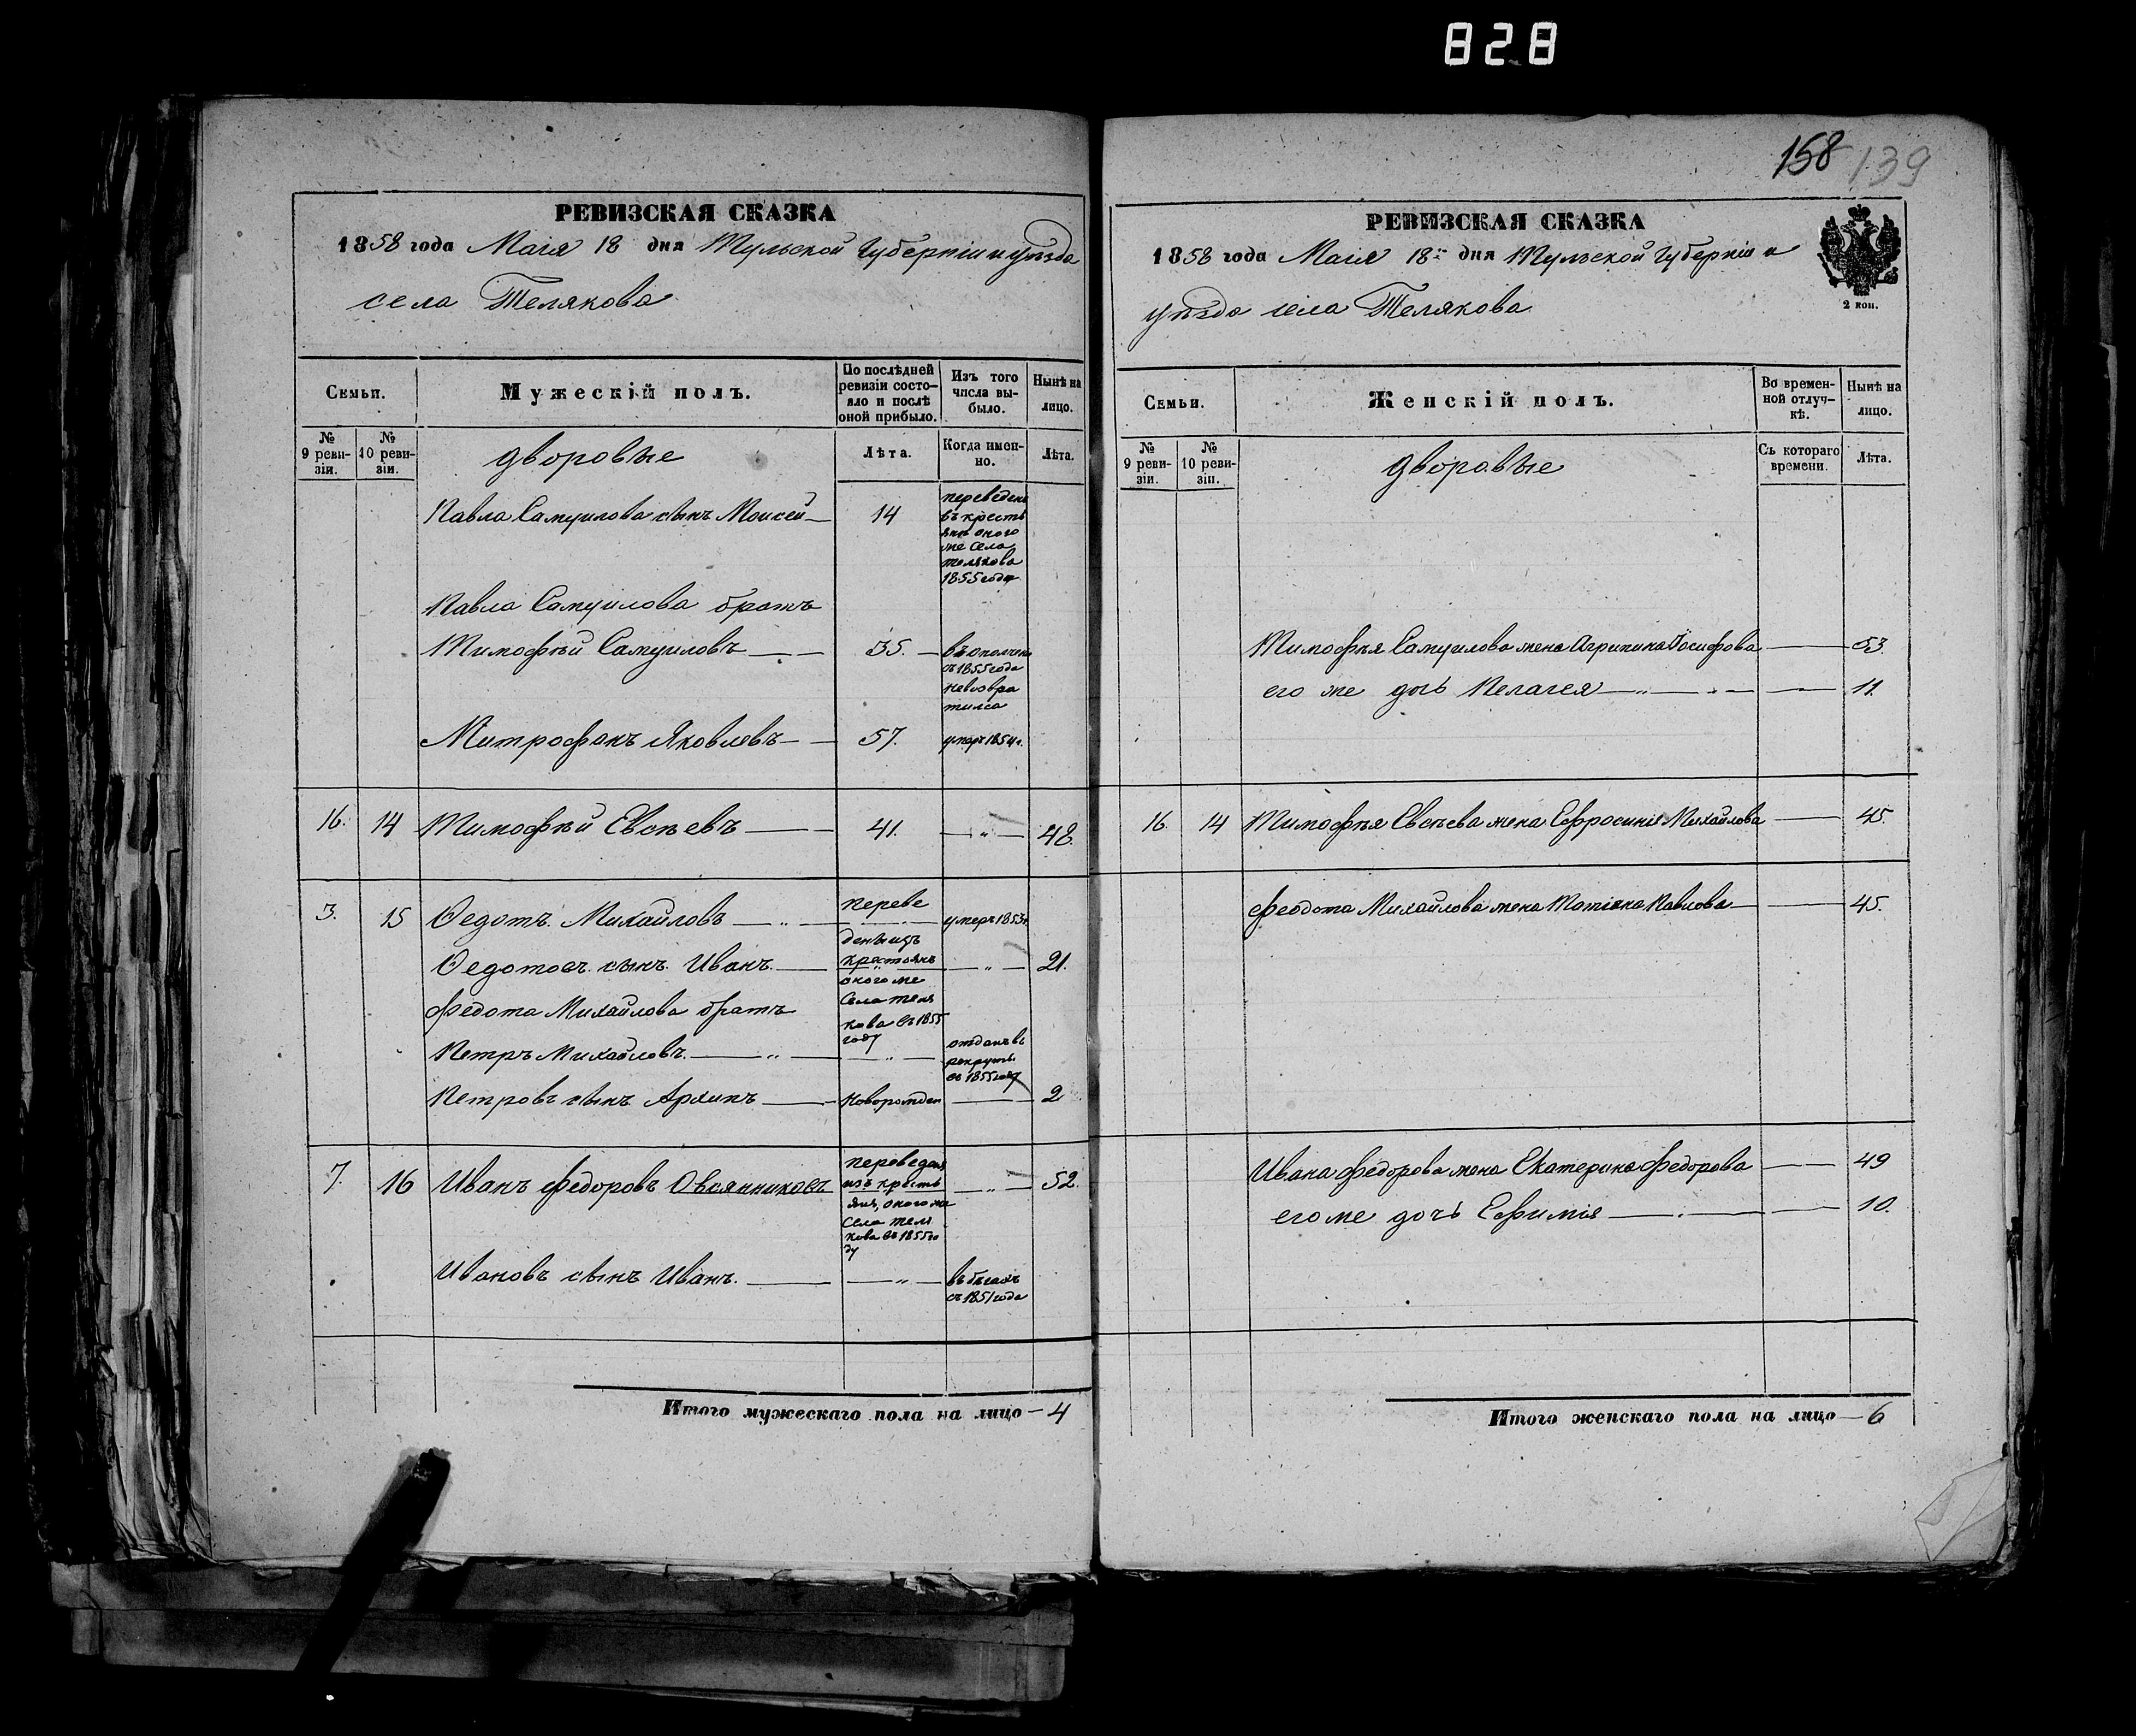 828
158 139
РЕВИЗСКАЯ СКАЗКА
1858 года Маія 18 дня Тульской Губерніи и уѣзда
села Телякова
Семьи.
Мужескій полъ.
По послѣдней ревизіи состо-
яло и послѣ
оной прибыло.
Изъ того
числа вы-
было.
Нынѣ на
лицо.
№
9 реви-
зіи.
№
10 реви-
зіи.
дворовые
Лѣта.
Когда имен-
но.
Лѣта.
Павла Самуилова сынъ Моисей — 14
переведенъ
въ кресть
яне оного
же села
телякова
1855 году
Павла Самуилова братъ
Тимофѣй Самуиловъ — 35. —
въ ополчен
съ 1855 года
невозвра
тился
Митрофанъ Яковлевъ — 57. умеръ 1854 г.
16. 14 Тимофѣй Евсѣевъ — 41. — „ — 48.
3. 15 Ѳедотъ Михайловъ — „ — умеръ 1853 г.
Ѳедотовъ сынъ Иванъ — „ — 21.
Федота Михайлова братъ
Петръ Михайловъ — „ —
переве
дены изъ
крестьянъ
оного же
села теля
кова въ 1855
году
отданъ въ
рекруты
въ 1855 году
Петровъ сынъ Архипъ — новорожден — 2
7. 16 Иванъ Федоровъ Овсянниковъ — „ — 52.
переведен
изъ кресть
янъ, оного же
села теля
кова въ 1855 го
ду
Ивановъ сынъ Иванъ. — „ —
въ бегахъ
съ 1851 года
Итого мужескаго пола на лицо — 4
РЕВИЗСКАЯ СКАЗКА
1858 года Маія 18 дня Тульской Губерніи и
уѣзда села Телякова
2 коп.
Семьи.
Женскій полъ.
Во времен-
ной отлуч-
кѣ.
Нынѣ на
лицо.
№
9 реви-
зіи.
№
10 реви-
зіи.
дворовые
Съ котораго
времени.
Лѣта.
Тимофѣя Самуилова жена Агрипина Іосифова — 53.
его же дочь Пелагея — „ — 11.
16 14 Тимофѣя Евсѣева жена Ефросинія Михайлова — 45.
Феодота Михайлова жена Татіяна Павлова — 45.
Ивана Федорова жена Екатерина Федорова — 49
его же дочь Ефимія — 10.
Итого женскаго пола на лицо — 6